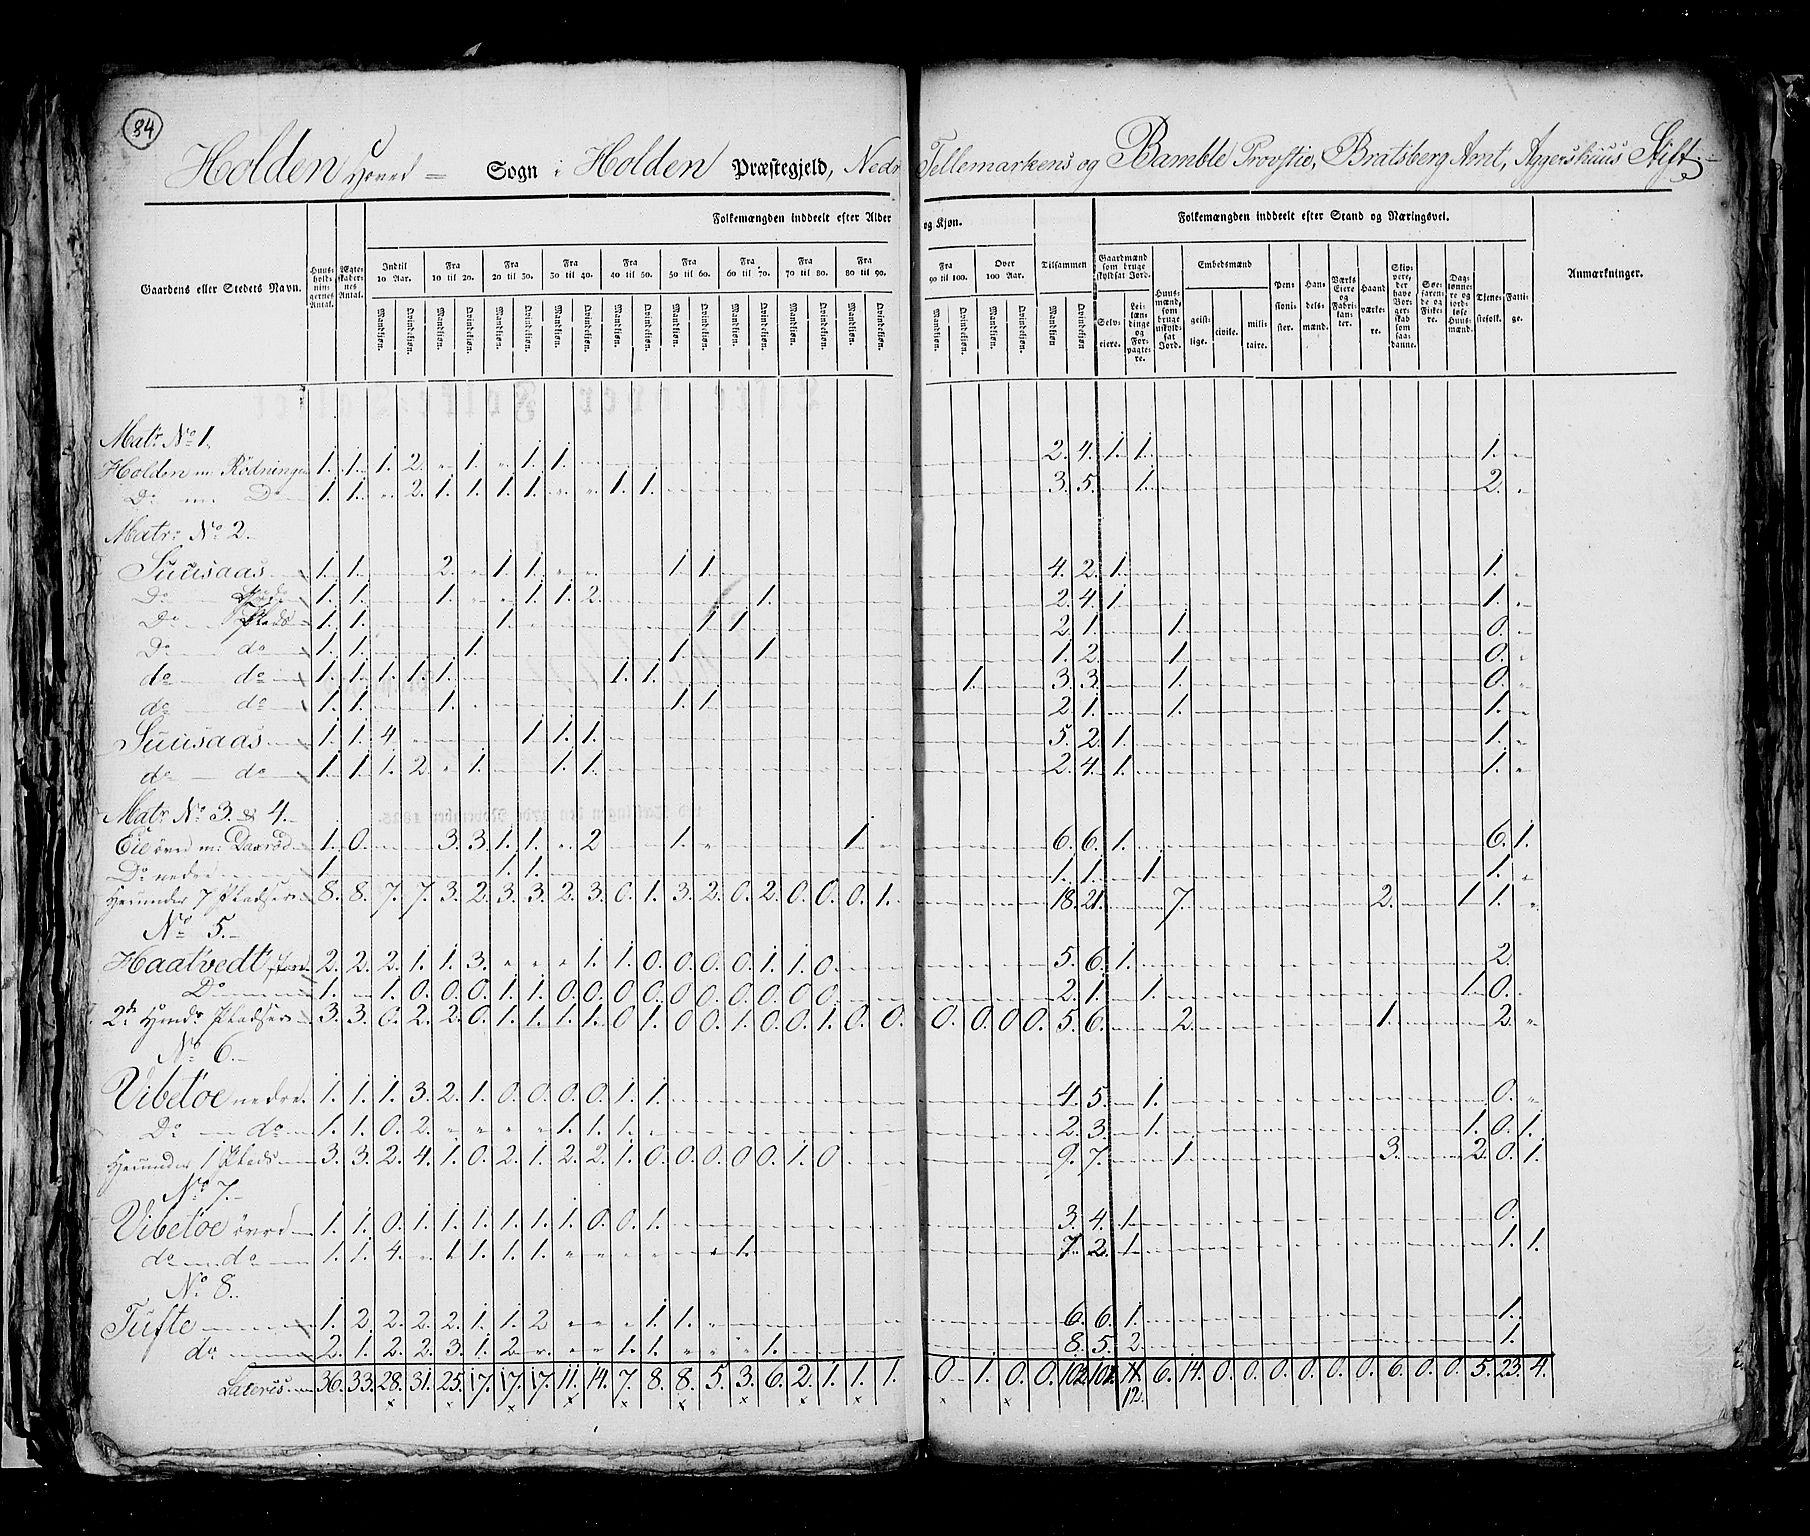 84
Holden Hoved Sogn i Holden Præstegjeld, Nedr Tellemarkens og Bamble Provstie, Bratsberg Amt, Aggershuus Stift.
Folkemængden inddeelt efter Alder og Kjøn.
Folkemængden inddeelt efter Stand og Næringsvei.
Gaardens eller Stedets Navn. Huusholdningernes Antal. Ægteskabernes Antal. Indtil 10 Aar. Fra 10 til 20. Fra 20 til 30. Fra 30 til 40. Fra 40 til 50. Fra 50 til 60. Fra 60 til 70. Fra 70 til 80. Fra 80 til 90. Fra 90 til 100. Over 100 Aar. Tilsammen Gaardmænd som bruge skyldsat Jord. Huusmænd, som bruge uskyldsat Jord. Embedsmænd Pensionister. Handelsmænd. Værks Eiere og Fabrikanter. Haandværkere. Søefarende og Fiskere. Tjenestefolk. Fattige. Anmærkninger.
Mandkiøn. Qvindekiøn. Selveiere. Leilændinge og Forpagtere. geistlige. civile. militaire.
Matr. No 1.
Holden m Rödningen 1. 1. 1. 2. „ 1. „ 1. 1. 2. 4. 1. 1. 1. „
Do m Do 1. 1. „ 2. 1. 1. 1. 1. „ „ 1. 1. 3. 5. 1. 2. „
Matr. No 2.
Suusaas 1. 1. 2. „ 1. 1. 1. 1. 4. 2. 1. 1. „
Do 1. 1. 1. 1. 1. 2. 1. 2. 4. 1. 1. „
Do Plads 1. 1. 1. 1. 1. 2. 1. 1. 0. „
Do do 1. 1. 1. 1. 1. 1. 2. 1. 0. „
do do 1. 1. 1. 1. 1. 1. 1. 1. 3. 3. 1. 0. „
do do 1. 1. 1. 1. 1. 2. 1. 1. 1. „
Suusaas 1. 1. 4. 1. 1. 1. 5. 2. 1. 1. „
do do 1. 1. 1. 2. „ 1. 1. 1. 2. 4. 1. 1. „
Matr No 3. & 4.
Eie övre m. Daxröd 1. 0. 3. 3. 1. 1. „ 2 1. 1. 6. 6. 1. 6. 1.
Do nedre 1. 1. 1. 1. 1. 1. 1. „
Herunder 7 Pladser 8. 8. 7. 7. 3. 2. 3. 3. 2. 3. 0. 1. 3. 2. 0. 2. 0. 0. 0. 1. 18. 21. 7. 2. 1 1. „
No 5.
Haatvedt 2. 2. 2. 1. 1. 3. „ „ „ 1. 1. 0. 0. 0. 0. 1. 1. 0. 5. 6. 1. 2.
Do 1. 1. 0. 0. 0. 1. 1. 0. 0. 0. 0. 0. 0. 0. 0. 0. 0. 2. 1. 1. 1. 0.
Pladser 3. 3. 0. 2. 2. 0. 1. 1. 1. 1. 0 1. 0 0. 1. 0. 0. 1. 0. 0. 0. 0. 0 0. 5. 6. 2. 1. 2. „
No 6.
Vibetöe nedre. 1. 1. 1. 3. 2. 1. 0. 0. 0. 0. 1. 1. 4. 5. 1. 0. „
Do do 1. 1. 0. 2. „ „ „ „ 1. 1. 1. 2. 3. 1. 1. 0. 1.
Herunder 1 Plads 3. 3. 2. 4. 1. 0. 2. 1. 2. 2. 1. 0. 0. 0. 0 0. 1. 0. 9. 7. 1. 3. 2. 0. 1.
No 7.
Vibetöe övre 1. 1. 0. 1. 1. 1. 1. 1. 1. 0. 0. 1. 3. 4. 1. 0.
do do 1. 1. 4. „ 1. 1. 1. 1. „ „ „ „ „ 1. 7. 2. 1. 1. 1.
No 8.
Tufte 1. 2 2. 2. 2. 1. 1. 2 „ „ „ 1. 1. 6. 6. 1. 1.
do 2. 1. 2. 2. 3. 1. 2 „ „ „ 1. 1. „ „ „ 1. 8. 5. 2 1.
Lateris 36. 33. 28. 31. 25. 17. 17. 17. 11. 14. 7. 8. 8. 5. 3. 6. 2. 1. 1. 1. 0. 1. 0. 0. 102. 6. 14. 0. 0. 0. 0. 0. 0. 6. 0. 0. 5. 23. 4.
12.